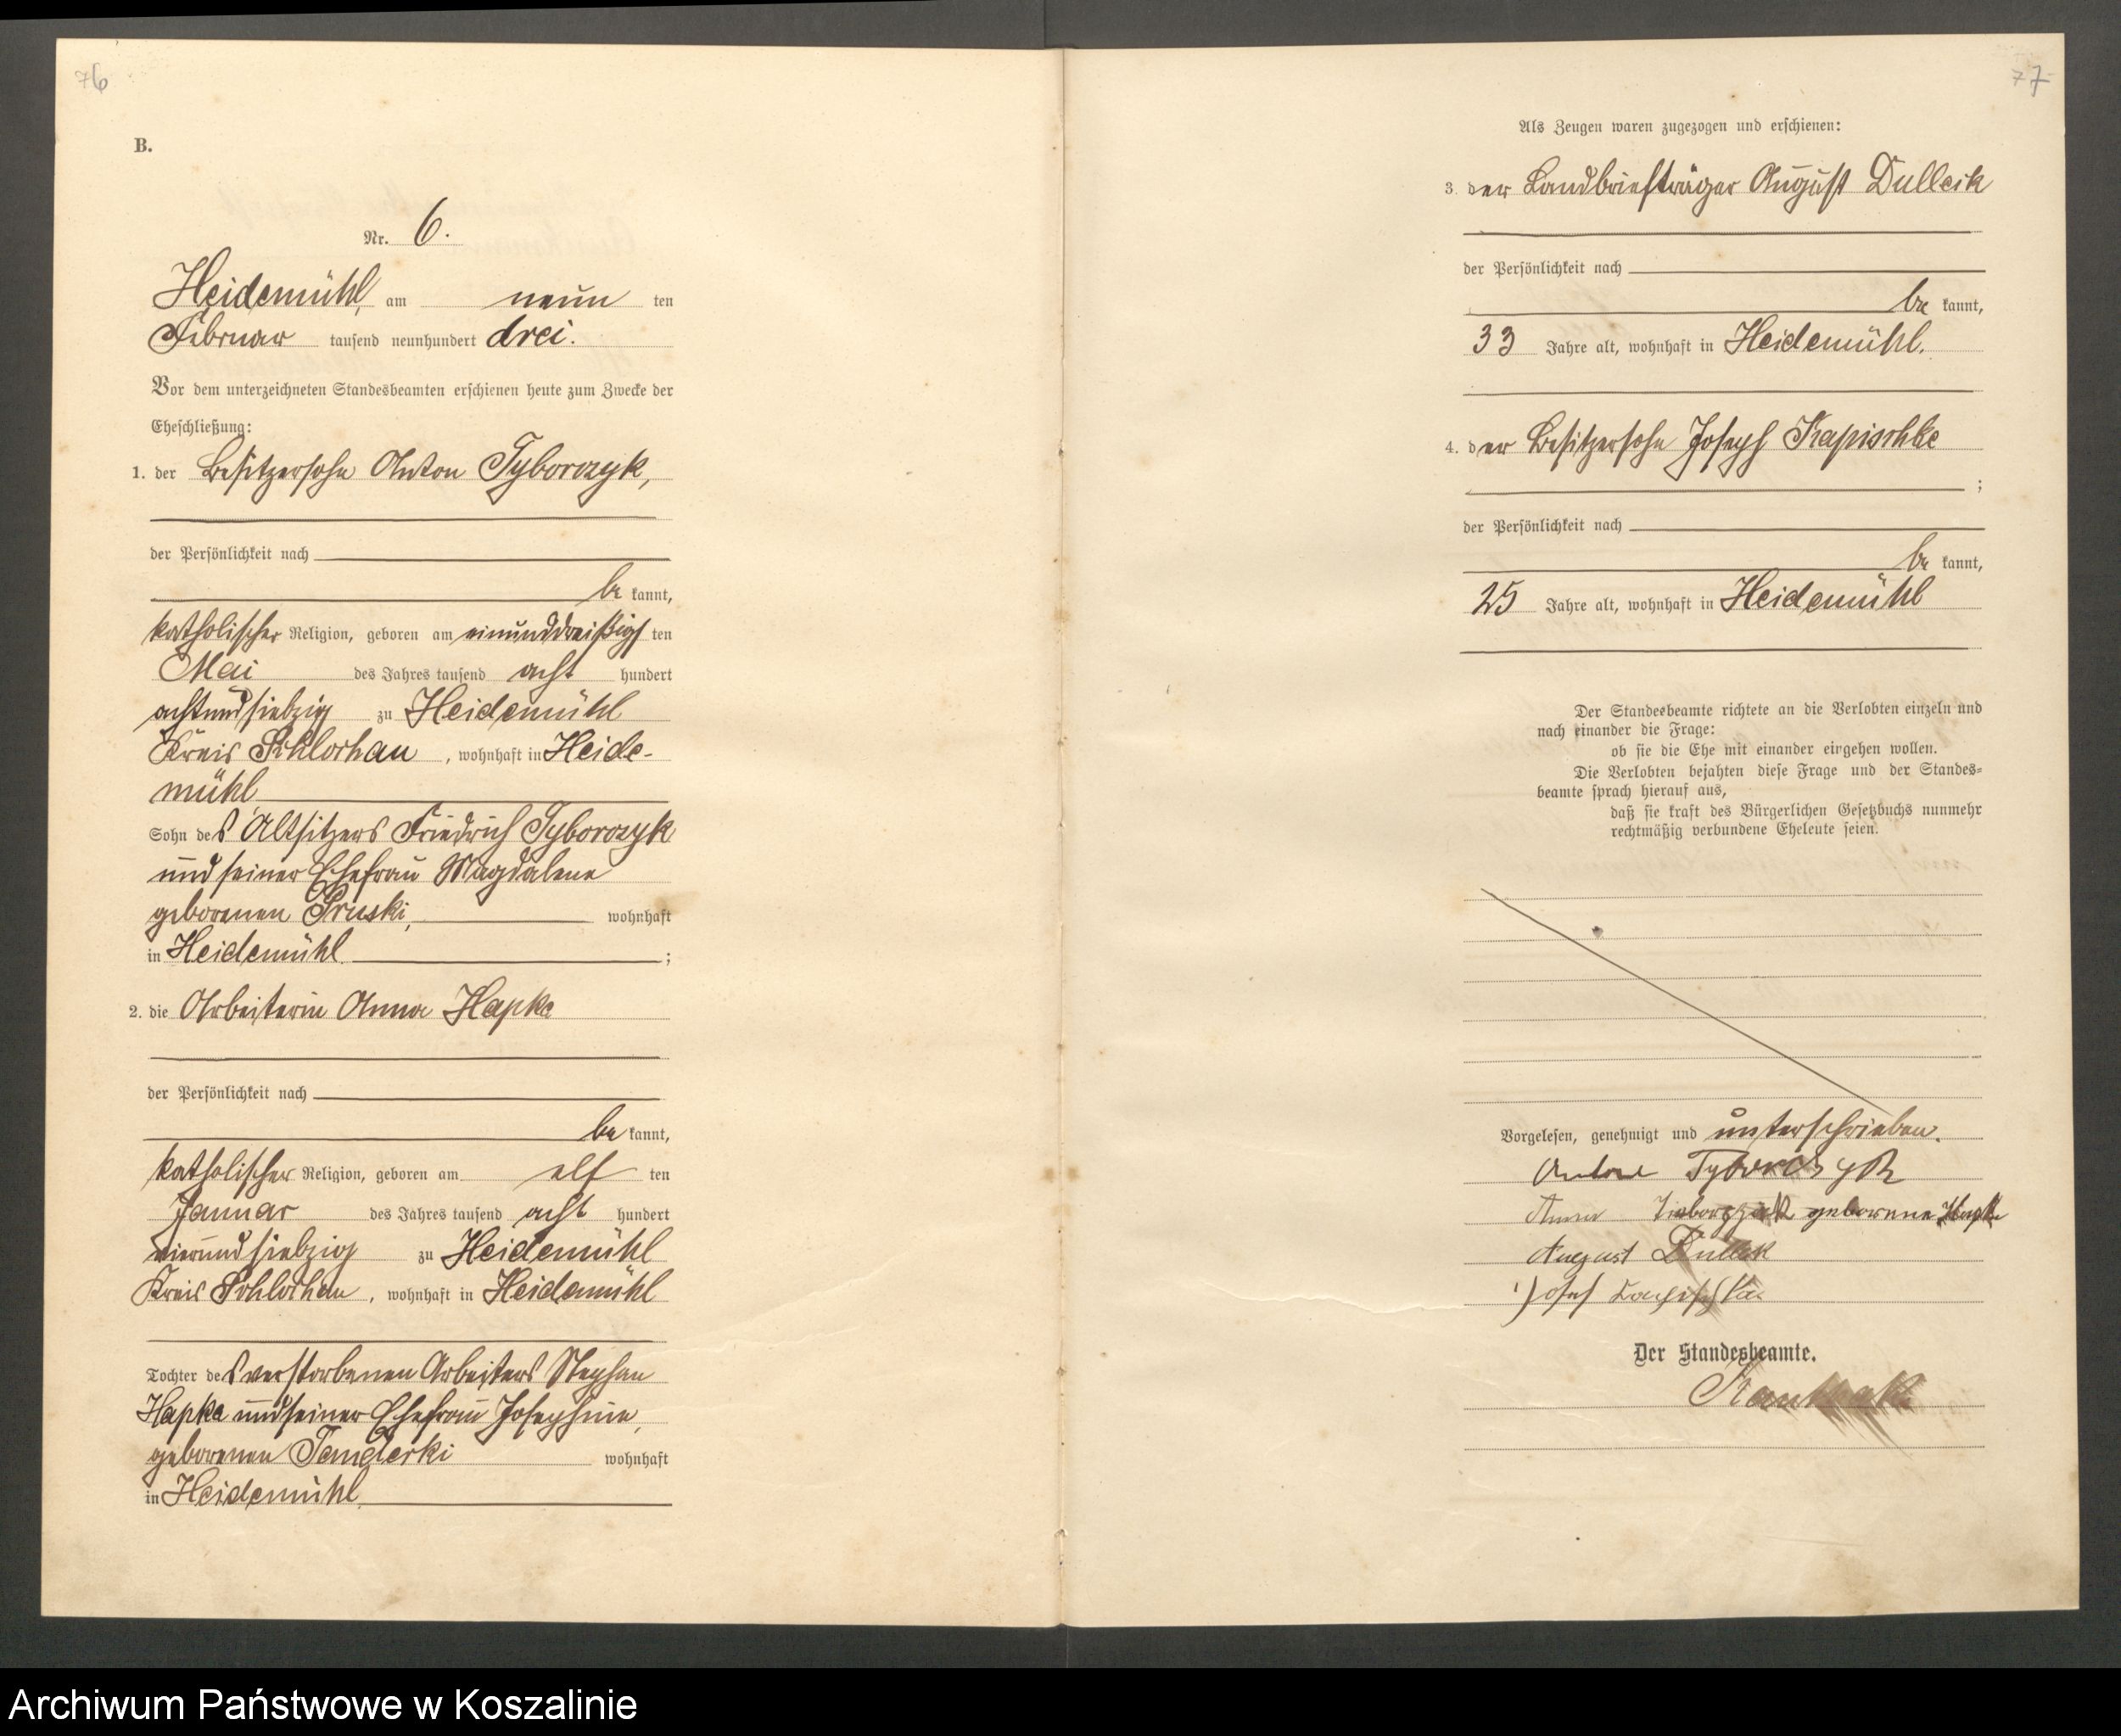 76
B.
Nr. 6.
Heidemühl, am neun ten
Februar tausend neunhundert drei.
Vor dem unterzeichneten Standesbeamten erschienen heute zum Zwecke der
Eheschließung:
1. der Besitzersohn Anton Tyborczyk,
der Persönlichkeit nach
be kannt,
katholischer Religion, geboren am einunddreißigs ten
Mai des Jahres tausend acht hundert
achtundsiebzig zu Heidemühl
Kreis Schlochau, wohnhaft in Heide-
mühl
Sohn des Altsitzers Friedrich Tyborczyk
und seiner Ehefrau Magdalene
geborenen Pruski, wohnhaft
in Heidemühl ;
2. die Arbeiterin Anna Hapka
der Persönlichkeit nach
be kannt,
katholischer Religion, geboren am elf ten
Januar des Jahres tausend acht hundert
vierundsiebzig zu Heidemühl
Kreis Schlochau, wohnhaft in Heidemühl
Tochter des verstorbenen Arbeiters Stephan
Hapka und seiner Ehefrau Josephine,
geborenen wohnhaft
in Heidemühl
77
Als Zeugen waren zugezogen und erschienen:
3. der Landbriefträger August Dulleck
der Persönlichkeit nach
be kannt,
33 Jahre alt, wohnhaft in Heidemühl.
4. der Besitzersohn Joseph Kapischke
;
der Persönlichkeit nach
be kannt,
25 Jahre alt, wohnhaft in Heidemühl
Der Standesbeamte richtete an die Verlobten einzeln und
nach einander die Frage:
ob sie die Ehe mit einander eingehen wollen.
Die Verlobten bejahten diese Frage und der Standes=
beamte sprach hierauf aus,
daß sie kraft des Bürgerlichen Gesetzbuchs nunmehr
rechtmäßig verbundene Eheleute seien.
Vorgelesen, genehmigt und unterschrieben.
Anton Tyborczyk
Anna geborene Hapke
August Dulleck
Josef
Der Standesbeamte.
Archiwum Państwowe w Koszalinie